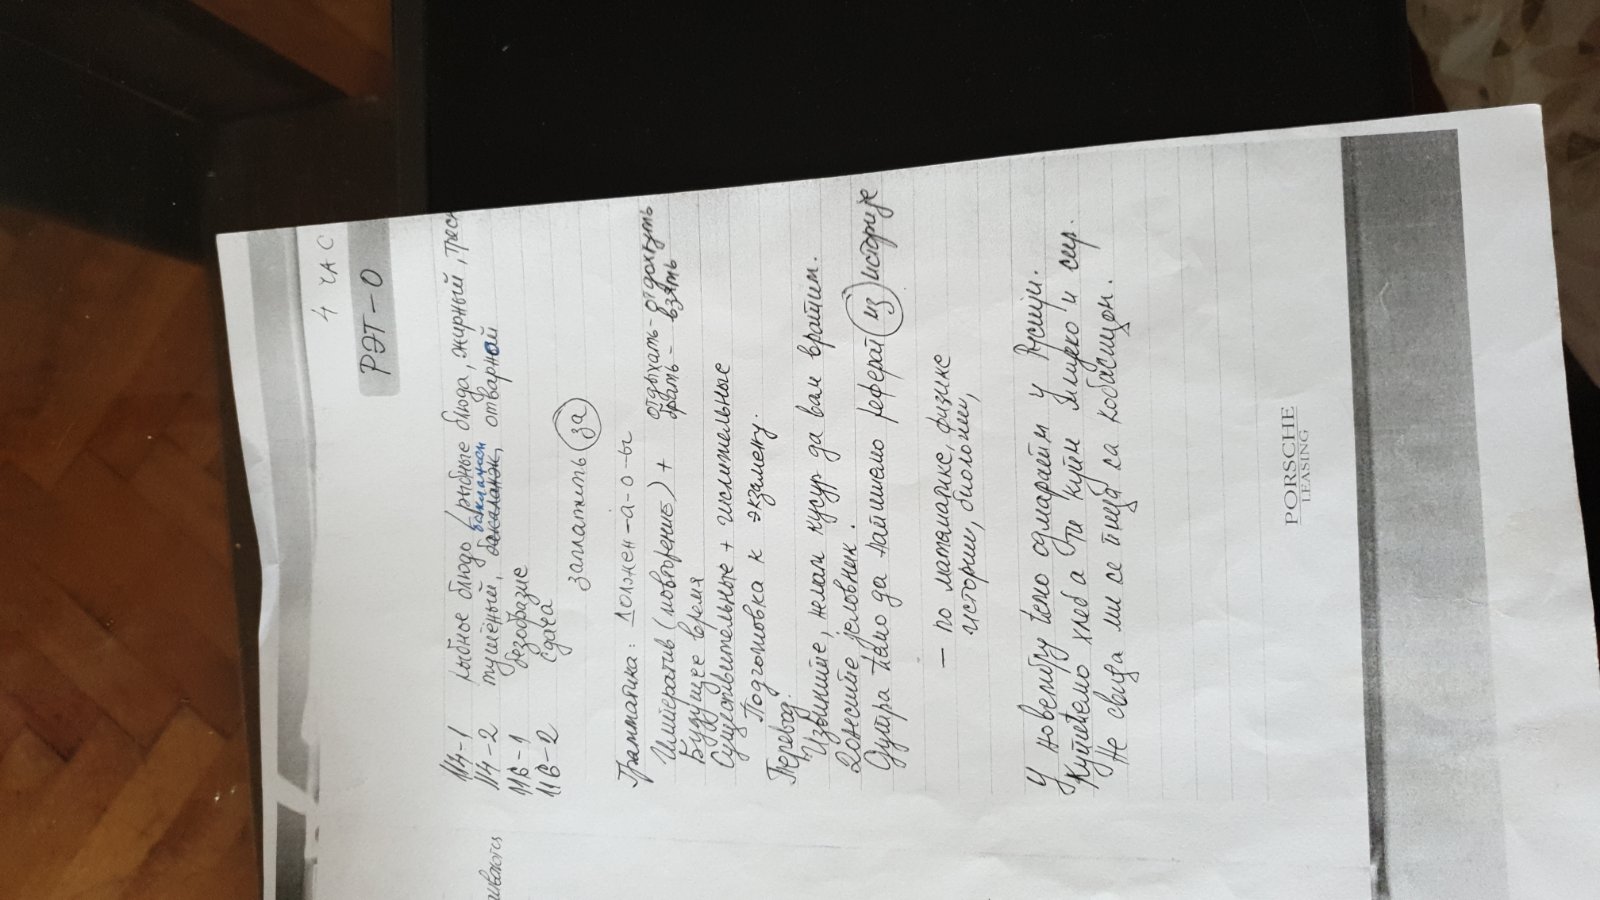 4 ЧАС
РЭТ-О
114-1 рыбное блюдо (рыбные блюда, жирный, треск
баклажан
114-2 тушёный, отварной
116-1 безобразие
116-2 сдача
заплатить за
Грамматика: должен-а-о-ы
Императив (повторение) + отдыхать - отдохнуть
Будущее время брать - взять
Существительные + числительные
Подготовка к экзамену.
Перевод:
Извините, немам кусур да вам вратим.
Донесите јеловник.
Сутра ћемо да напишемо реферат из историје
— по математике, физике
истории, биологии,
У новембру ћемо одмарати у Русији.
хлеб а ти купи млико и сир.
Не свиђа ми се пица са кобасицом.
PORSCHE
LEASING